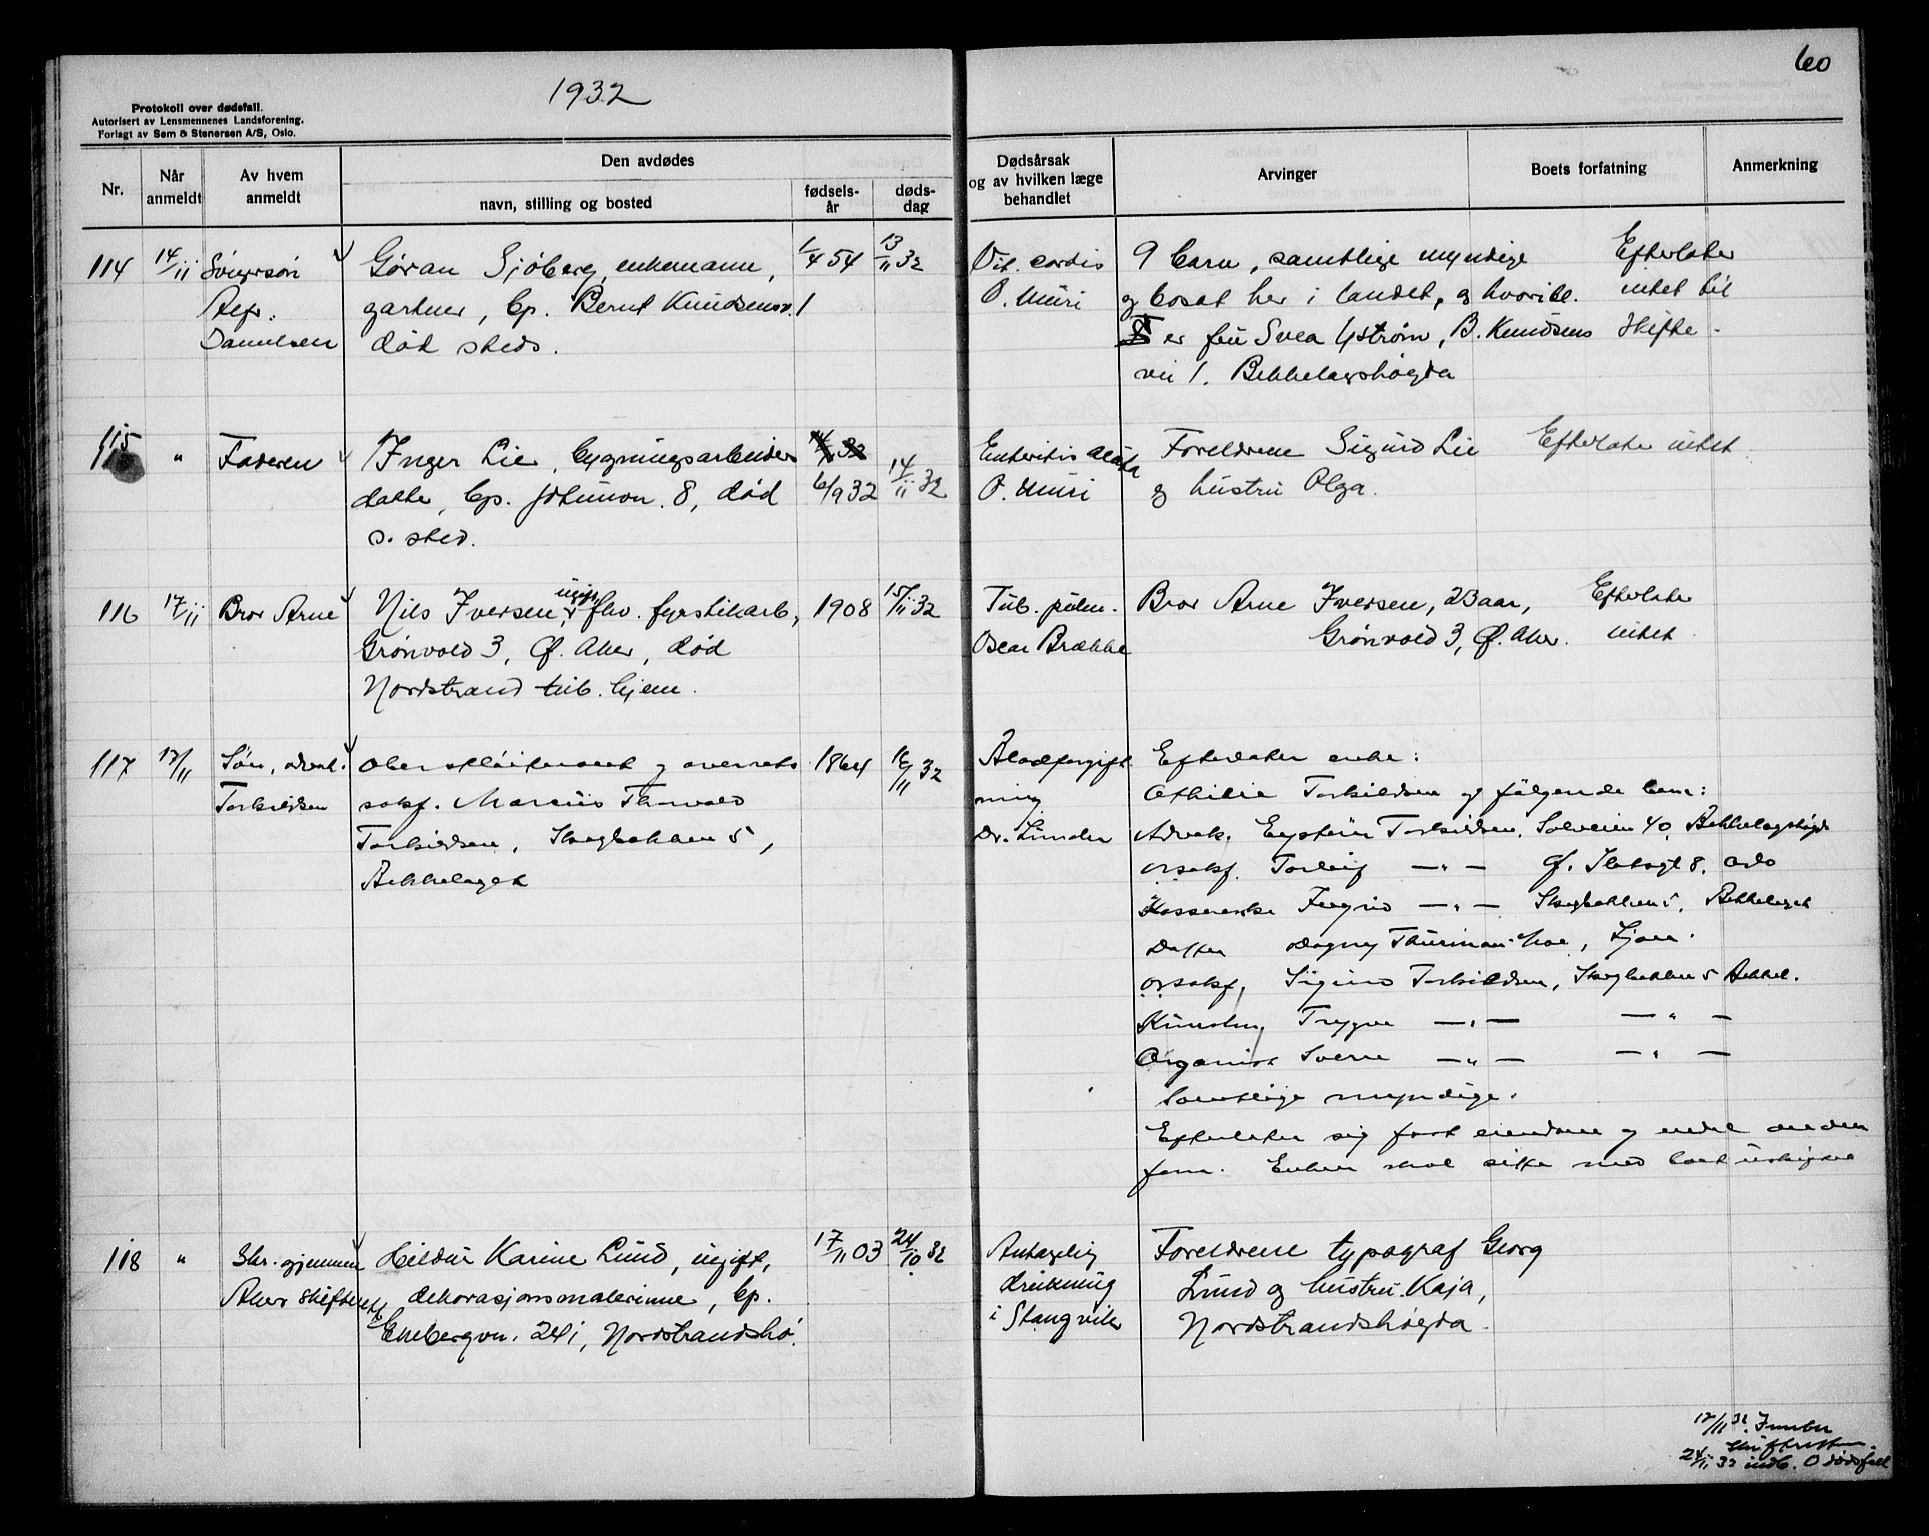 1932
60
Protokoll over dødsfall.
Autorisert av Lensmennenes Landsforening.
Forlagt av Sem & Stenersen A/S, Oslo.
Nr.
Når anmeldt
Av hvem anmeldt
Den avdødes
navn, stilling og bosted
fødsels-år
døds-dag
Dødsårsak og av hvilken læge behandlet
Arvinger
Boets forfatning
Anmerkning
114 14/11
Alfr.
Danielsen
Gøran Sjöberg, enkemann,
gartner, bp. Bernt Knudsensv. 1
død steds.
1/4 54
13/11 32
Vit. cordis
O. Muri
9 barn, samtlige myndige
og bosat her i landet, og hvoribl.
er fru Svea Ystrøm, B. Knudsens
vei 1. Bekkelagshøgda
Efterlater
intet til
skifte.
115 " Faderen
Inger Lie, bygningsarbeider
datter, bp. 8, død
s. sted.
6/9 32
14/11 32
Enteritis acuta
O. Muri
Foreldrene Sigurd Lie
og hustru Olga.
Efterlater intet.
116 17/11 Bror Arne
Nils Iversen, ugift, fhv. fyrstikarb,
Grønvold 3, Ø. Aker, død
Nordstrand tub. hjem.
1908
15/11 32
Tub. pulm.
Oscar Brække
Bror Arne Iversen, 23 aar,
Grønvold 3, Ø. Aker.
Efterlater
intet
117 17/11 Søn, advok.
Torkildsen
Oberstløitenant og overrets
sakf. Marius Thorvald
Torkildsen, Skogbakken 5,
Bekkelaget
1864
16/11 32
Blodforgift
ning
Dr. Linder
Efterlater enke:
Othilie Torkildsen og følgende barn:
Advok. Eystein Torkildsen, Solveien 40, Bekkelagshøgd
orsakf. Torleif — " — Ø. Slotsgt 8, Oslo
Kassererske Ingrid — " — Skogbakken 5, Bekkelaget
Datter Dagny Thurman-Moe, Ljan.
orsakf. Sigurd Torkildsen, Skogbakken 5 Bekkel.
Trygve — " — — " —
Organist Sverre — " — — " —
Samtlige myndige.
Efterlater sig fast eiendom og endel anden
form. Enken skal sitte med boet uskiftet
118 " Skr. gjennem
Aker skifterett
Hildur Karine Lund, ugift,
dekorasjonsmalerinne, bp.
Enebergvn. 241, Nordstrandshø.
17/11 03
24/10 32
Antagelig
drukning
i Stangvik
Foreldrene typograf Georg
Lund og hustru Kaja,
Nordstrandshøgda.
17/11 32.
24/11 32 indb. 0 dødsfall